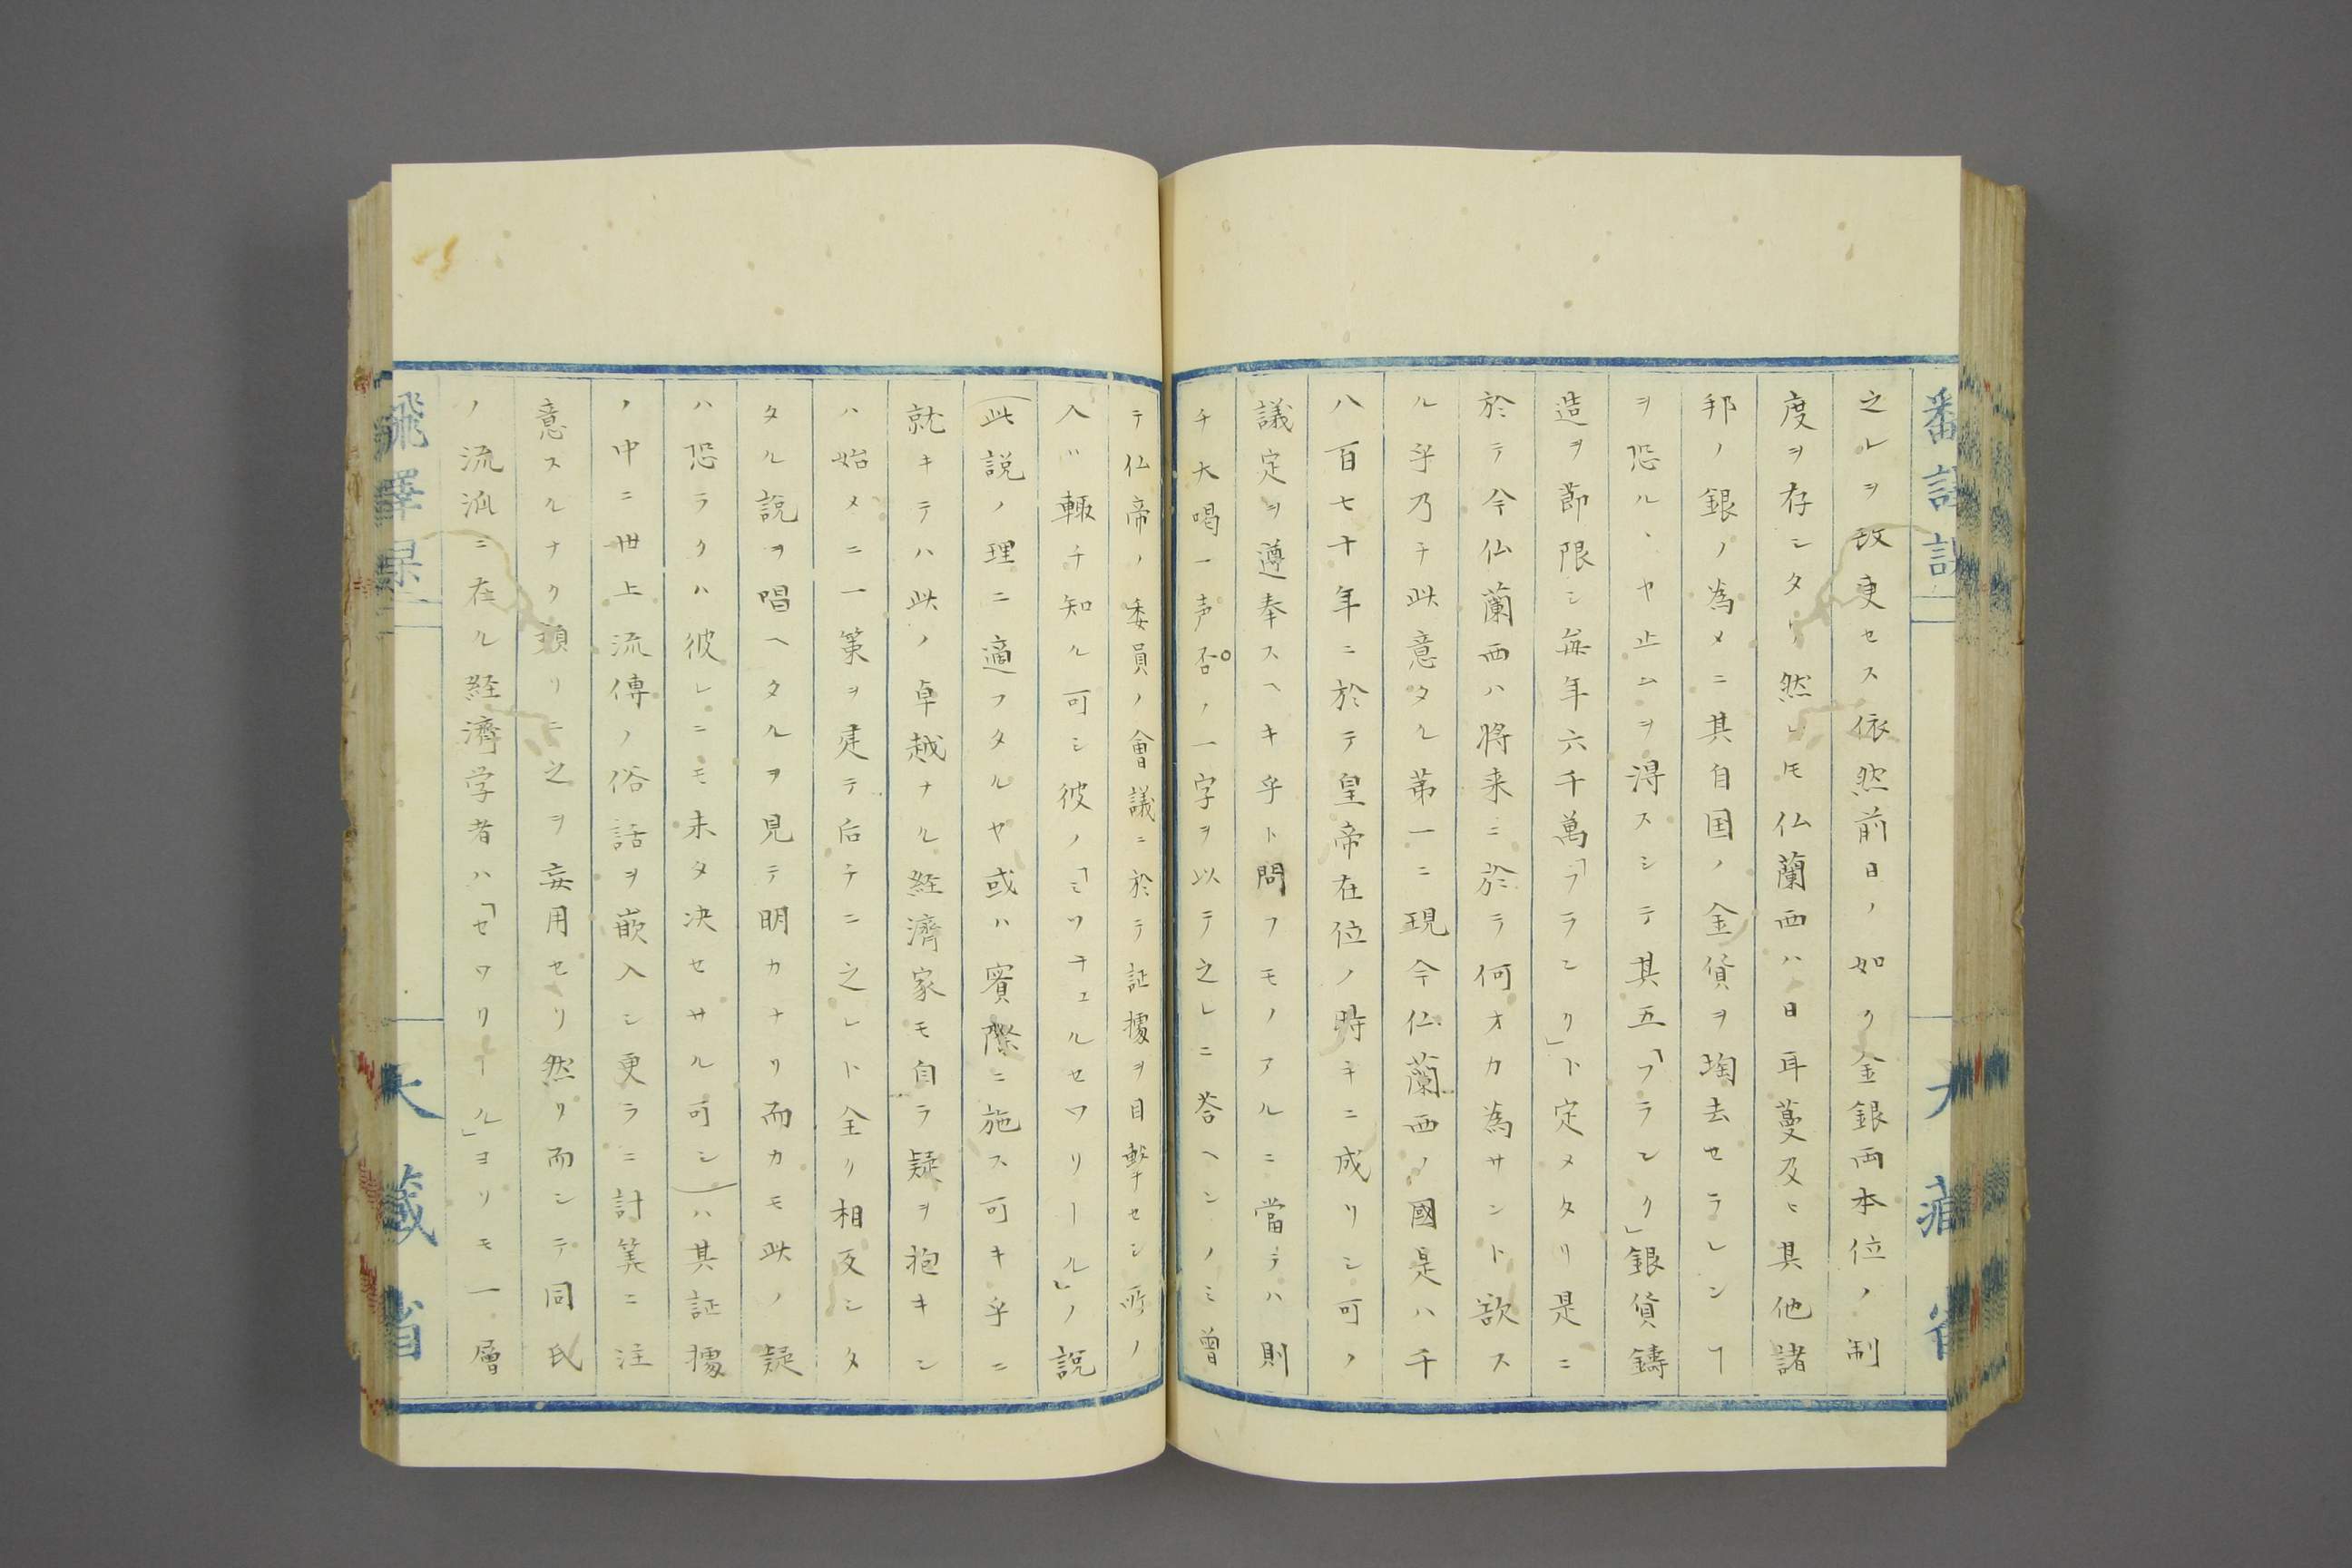 之レヲ改更セス依然前日ノ如ク金銀両本位ノ制
度ヲ存シタリ然レ𪜈仏蘭西ハ日耳蔓及ヒ其他諸
邦ノ銀ノ為メニ其自国ノ金貨ヲ掏去セラレンヿ
ヲ恐ルヽヤ止ムヲ得スシテ其五「フランク」銀貨鋳
造ヲ節限シ毎年六千萬「フランク」ト定メタリ是ニ
於テ今仏蘭西ハ将来ニ於テ何オカ為サント欲ス
ル乎乃チ此意タル苐一ニ現今仏蘭西ノ國是ハ千
八百七十年ニ於テ皇帝在位ノ時キニ成リシ可ノ
議定ヲ遵奉スヘキ乎ト問フモノアルニ當テハ則
チ大喝一声否ノ一字ヲ以テ之レニ荅ヘンノミ曽
テ仏帝ノ委員ノ會議ニ於テ証據ヲ目撃セシ所ノ
人ハ輙チ知ル可シ彼ノ「ミツチェルセワリール」ノ説
（此説ノ理ニ適フタルヤ或ハ實際ニ施ス可キ乎ニ
就キテハ此ノ卓越ナル経濟家モ自ラ疑ヲ抱キン
ハ始メニ一策ヲ建テ后チニ之レト全ク相反シタ
タル説ヲ唱ヘタルヲ見テ明カナリ而カモ此ノ疑
ハ恐ラクハ彼レニモ未タ决セサル可シ）ハ其証據
ノ中ニ世上流傳ノ俗話ヲ嵌入シ更ラニ計筭ニ注
意スルナク頻リニ之ヲ妄用セリ然リ而シテ同氏
ノ流派ニ在ル経濟学者ハ「セワリール」ヨリモ一層
大藏省